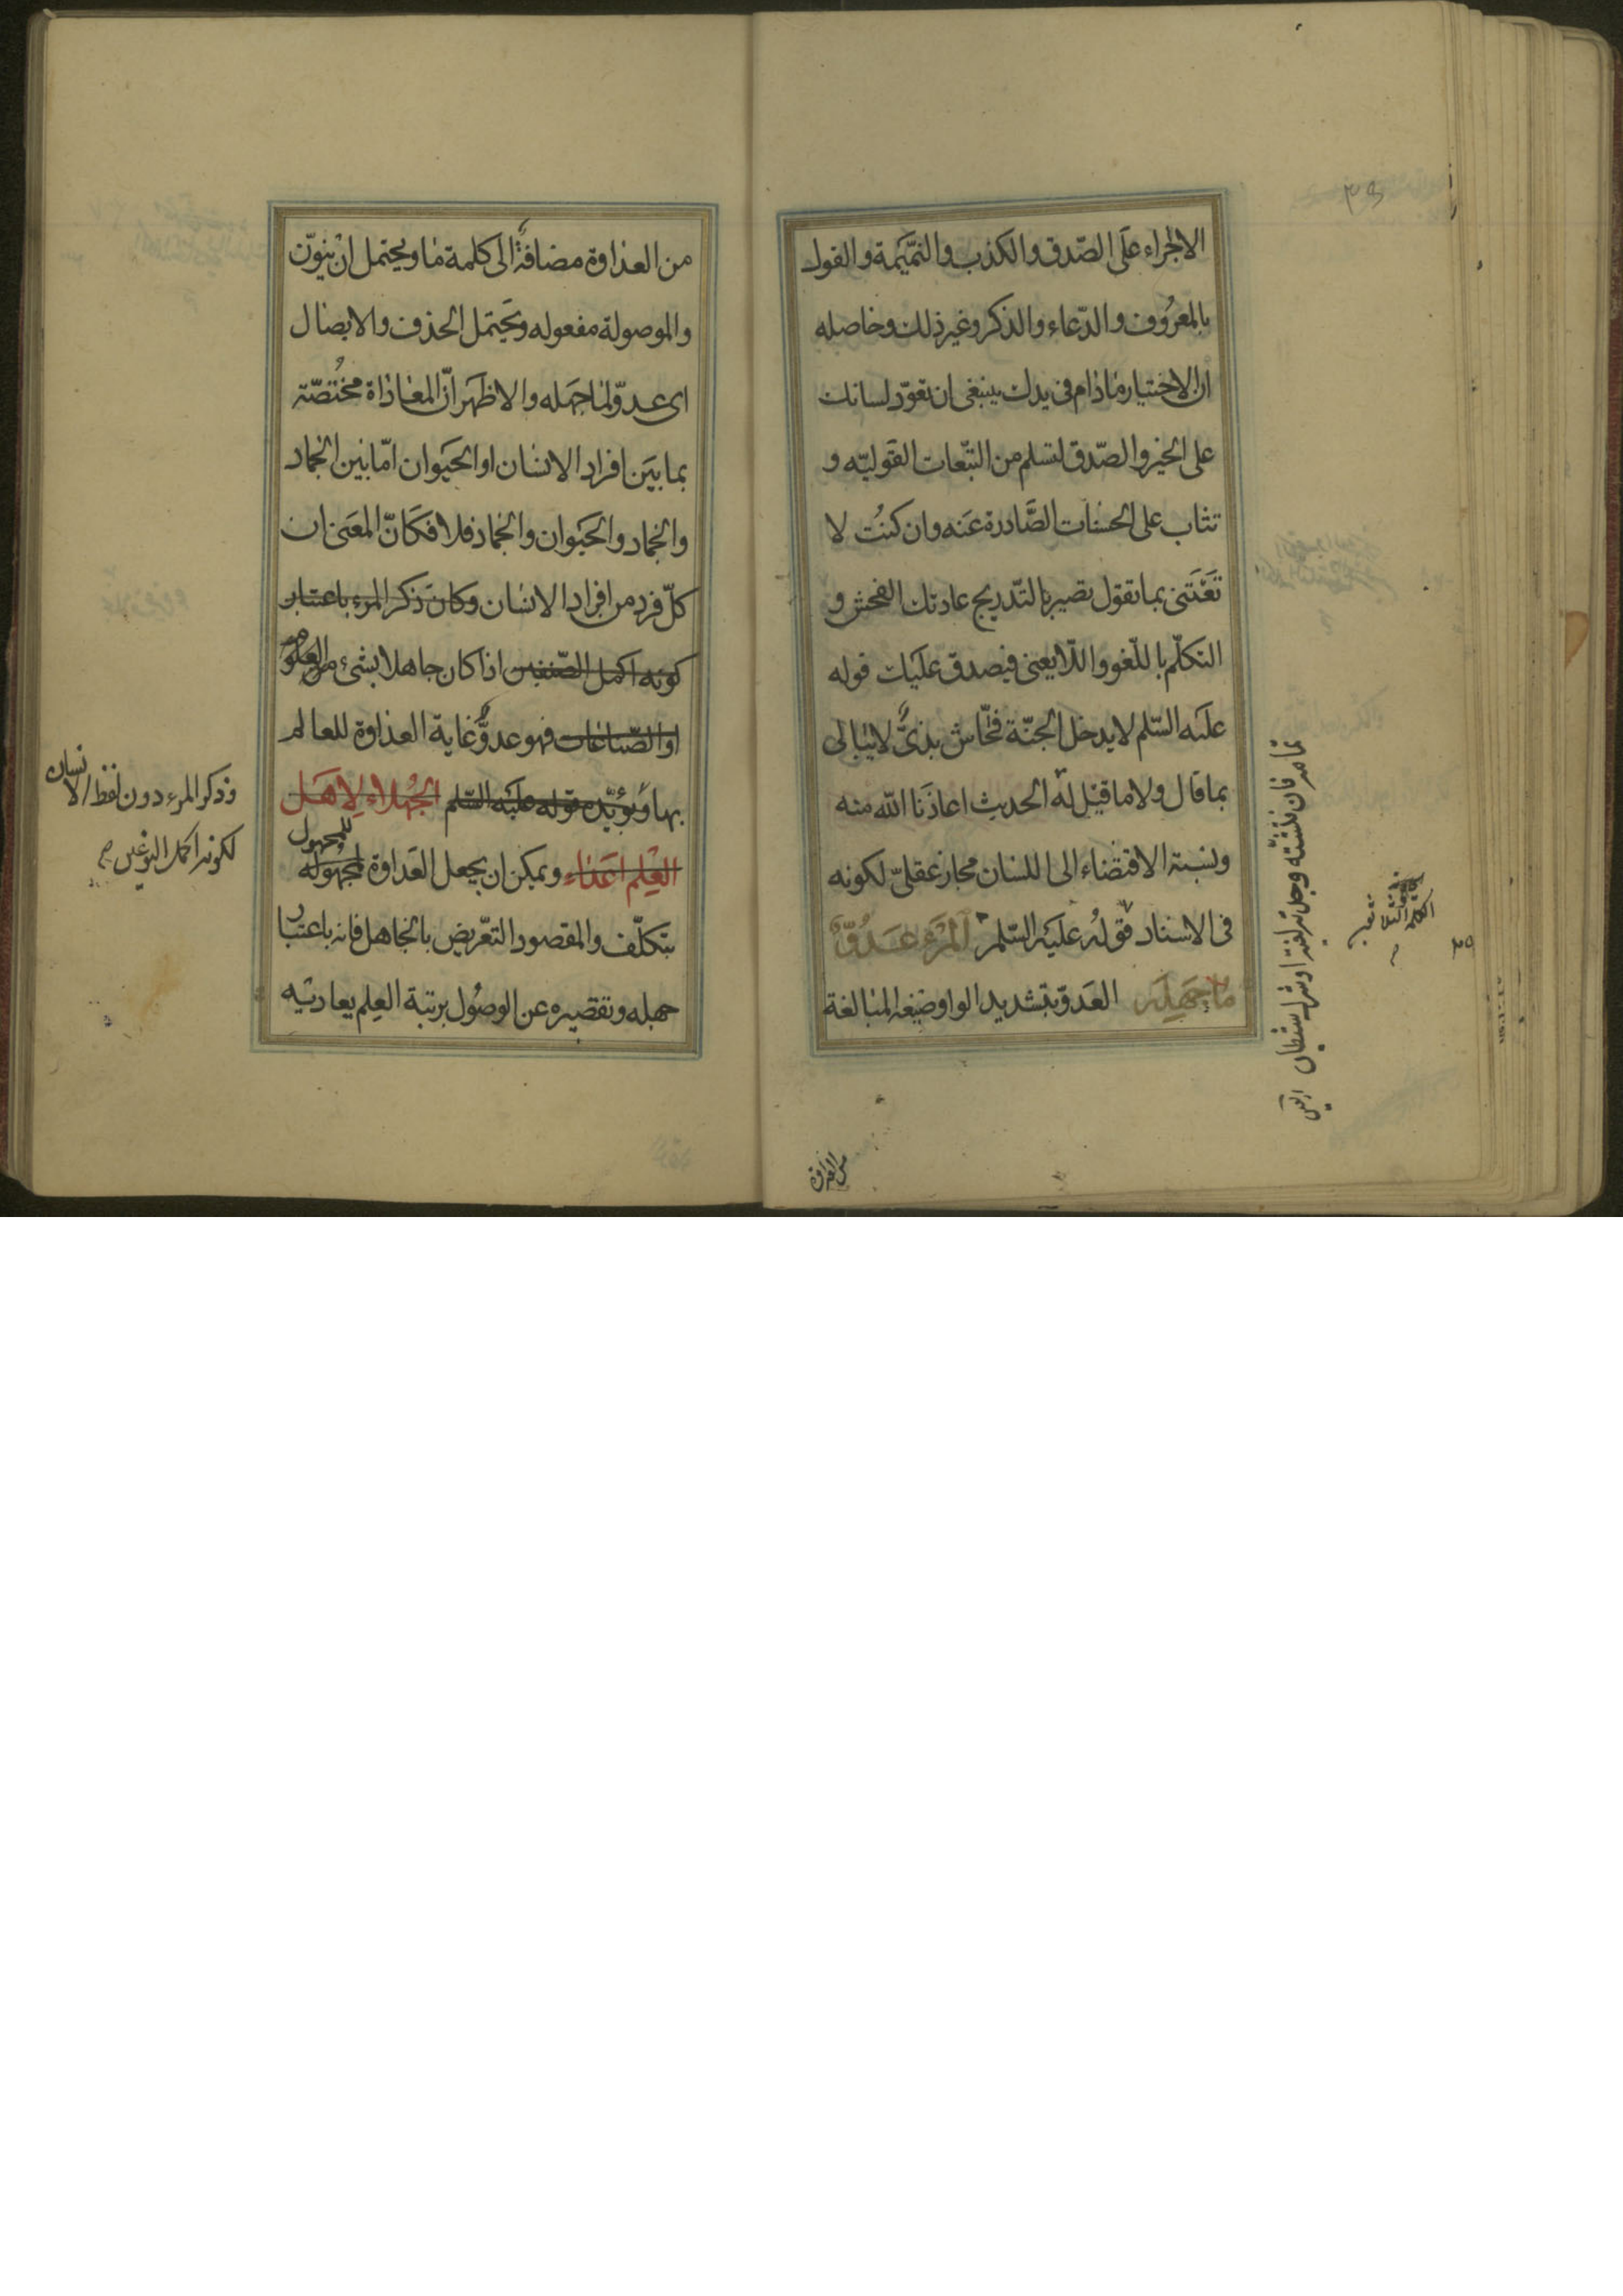 الاجراء على الصّدق والكذب والنّميمة والقول
بالمعرُوف والدّعاء والذكر وغير ذلك وحاصله
ان الاختيار مادام فى يدك ينبغى ان تعوّد لسانك
على الخير والصّدق لتسلم من التّبعات القوليّه و
تثاب على الحسنات الصَّادرة عَنه وان كنتُ لا
تَعْتَنى بما تقول تصير بالتّدريج عادتك الفحش و
التكلّم باللّغو واللّا يعنى فيصدق عليك قوله
عليه السّلم لا يدخل الجنّة فحّاش بذىٌّ لا يبالى
بما قال ولا ما قيل له الحديث اعاذنا الله منه
ونسبة الاقتضاء الى اللسان مجاز عقلىّ لكونه
فى الاسناد قولُه عليَه السّلم المَرْءُ عَدُوُّ
مَا جَهِلَه العَدوّ بتشديد الواو صيغه المبالغة
تمامه فان فتشته وجدته لغية او شرك شيطان
من العداوة
٣٩
من العداوة مضافةً الى كلمة ما ويحتمل ان ينوّن
والموصولة مفعوله ويَحتمل الحذف والايصال
اى عدوّ لما جهله والاظهَر انّ المعاداة مختُصّة
بما بَين افراد الانسان او الحَيَوان امّا بين الجماد
والجماد والحَيَوان والجماد فلا فكانّ المعَنى ان
كلّ فرد من افراد الانسان وكان ذكر المرء باعتبار
كونه اكمل الصّنفين اذا كان جاهلا بشىء من العلوم
او الصّناعات فهو عدوٌّ غاية العداوة للعالم
بها ويؤيّده قوله عليَه السّلم الجُهلاء لِاَهَل
العِلْم اعَداء ويمكن ان يجعل العَداوة لمجهُوله
للمجهول
بتكلّف والمقصود التعّريض بالجاهل فانه باعتبار
جهله وتقصيره عن الوصُول برتبة العِلم يعاديه
وذكر المرء دون لفظ الانسان
لكونه اكمل النوعين